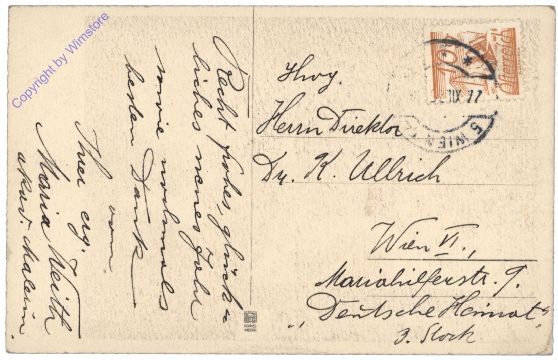 Copyright by Wimstore
Recht frohes, glück-
liches neues Jahr
sowie nochmals
besten Dank
von
Ihrer erg.
Maria
akad. Malerin
10
Österreich
XII 27
5 WIEN
Hwg.
Herrn Direktor
Dr. K. Ullrich
Wien VI.,
Mariahilferstr. 9.
"Deutsche Heimat"
3. Stock